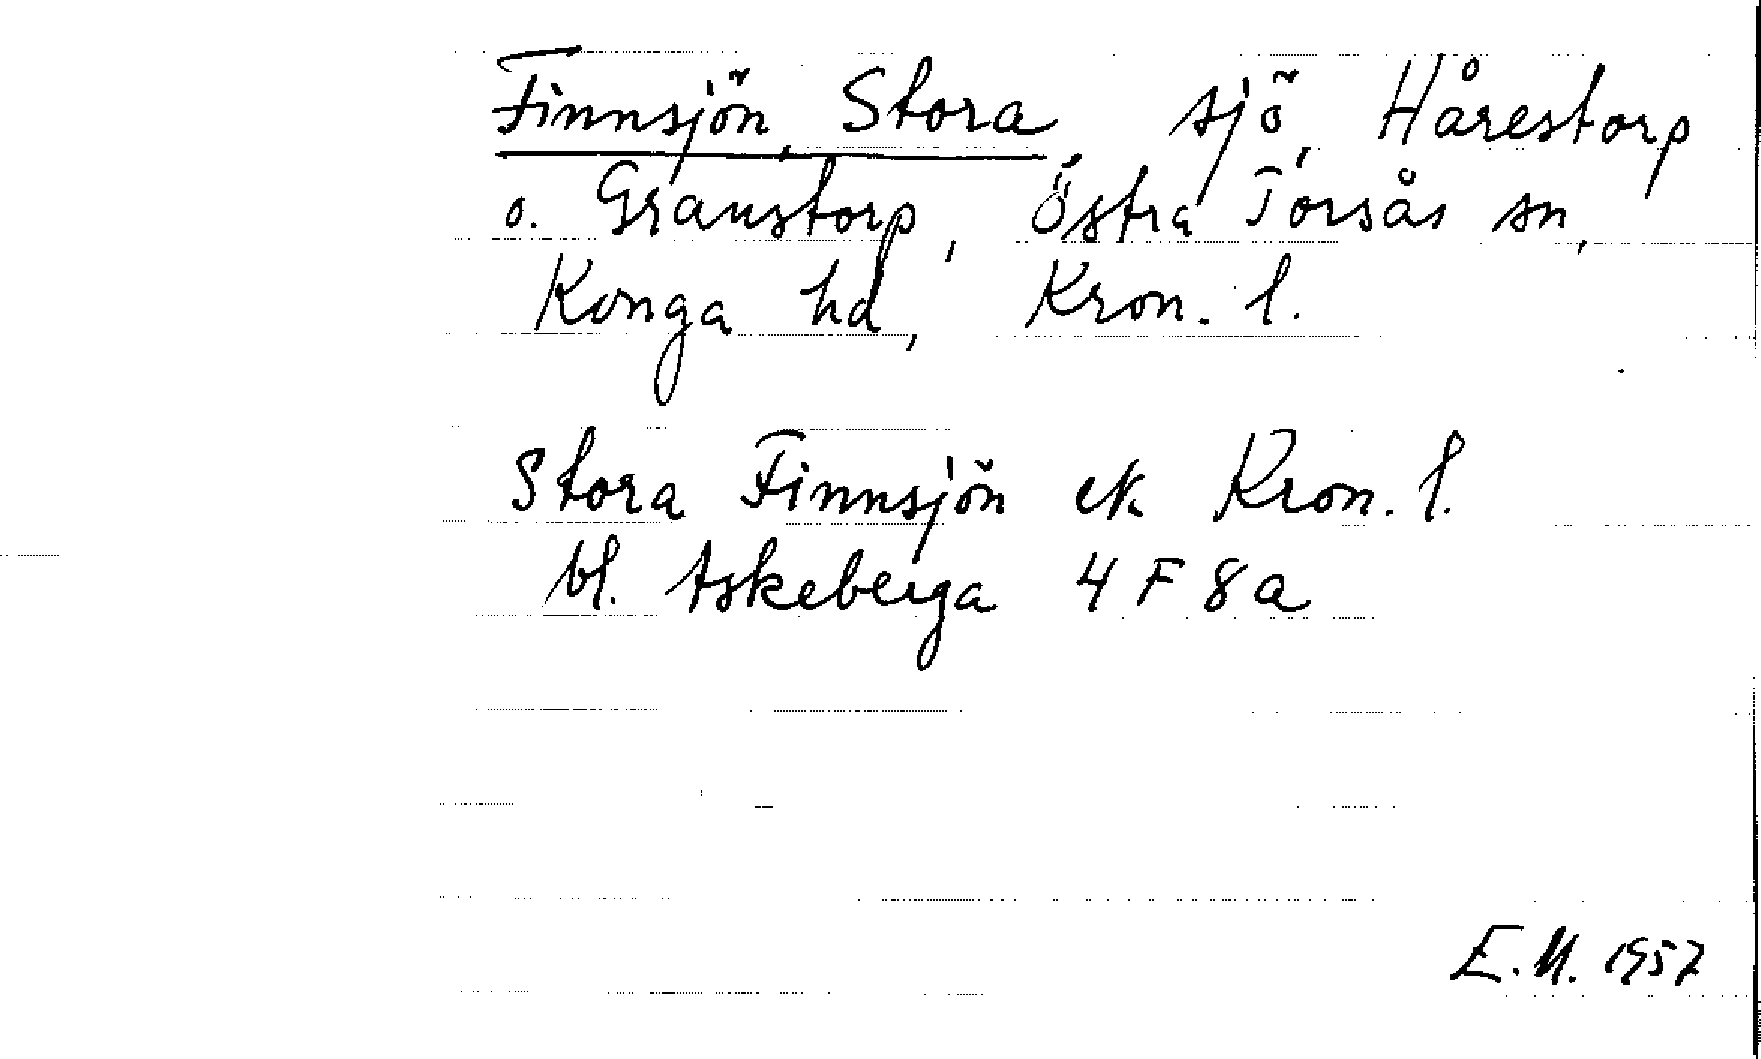 Finnsjön, Stora, sjö, Hårestorp
o. Granstorp, Östra Torsås sn,
Konga hd, Kron. l.
Stora Finnsjön ek Kron. l.
bl. Askeberga 4 F 8 a
E.M. 1957